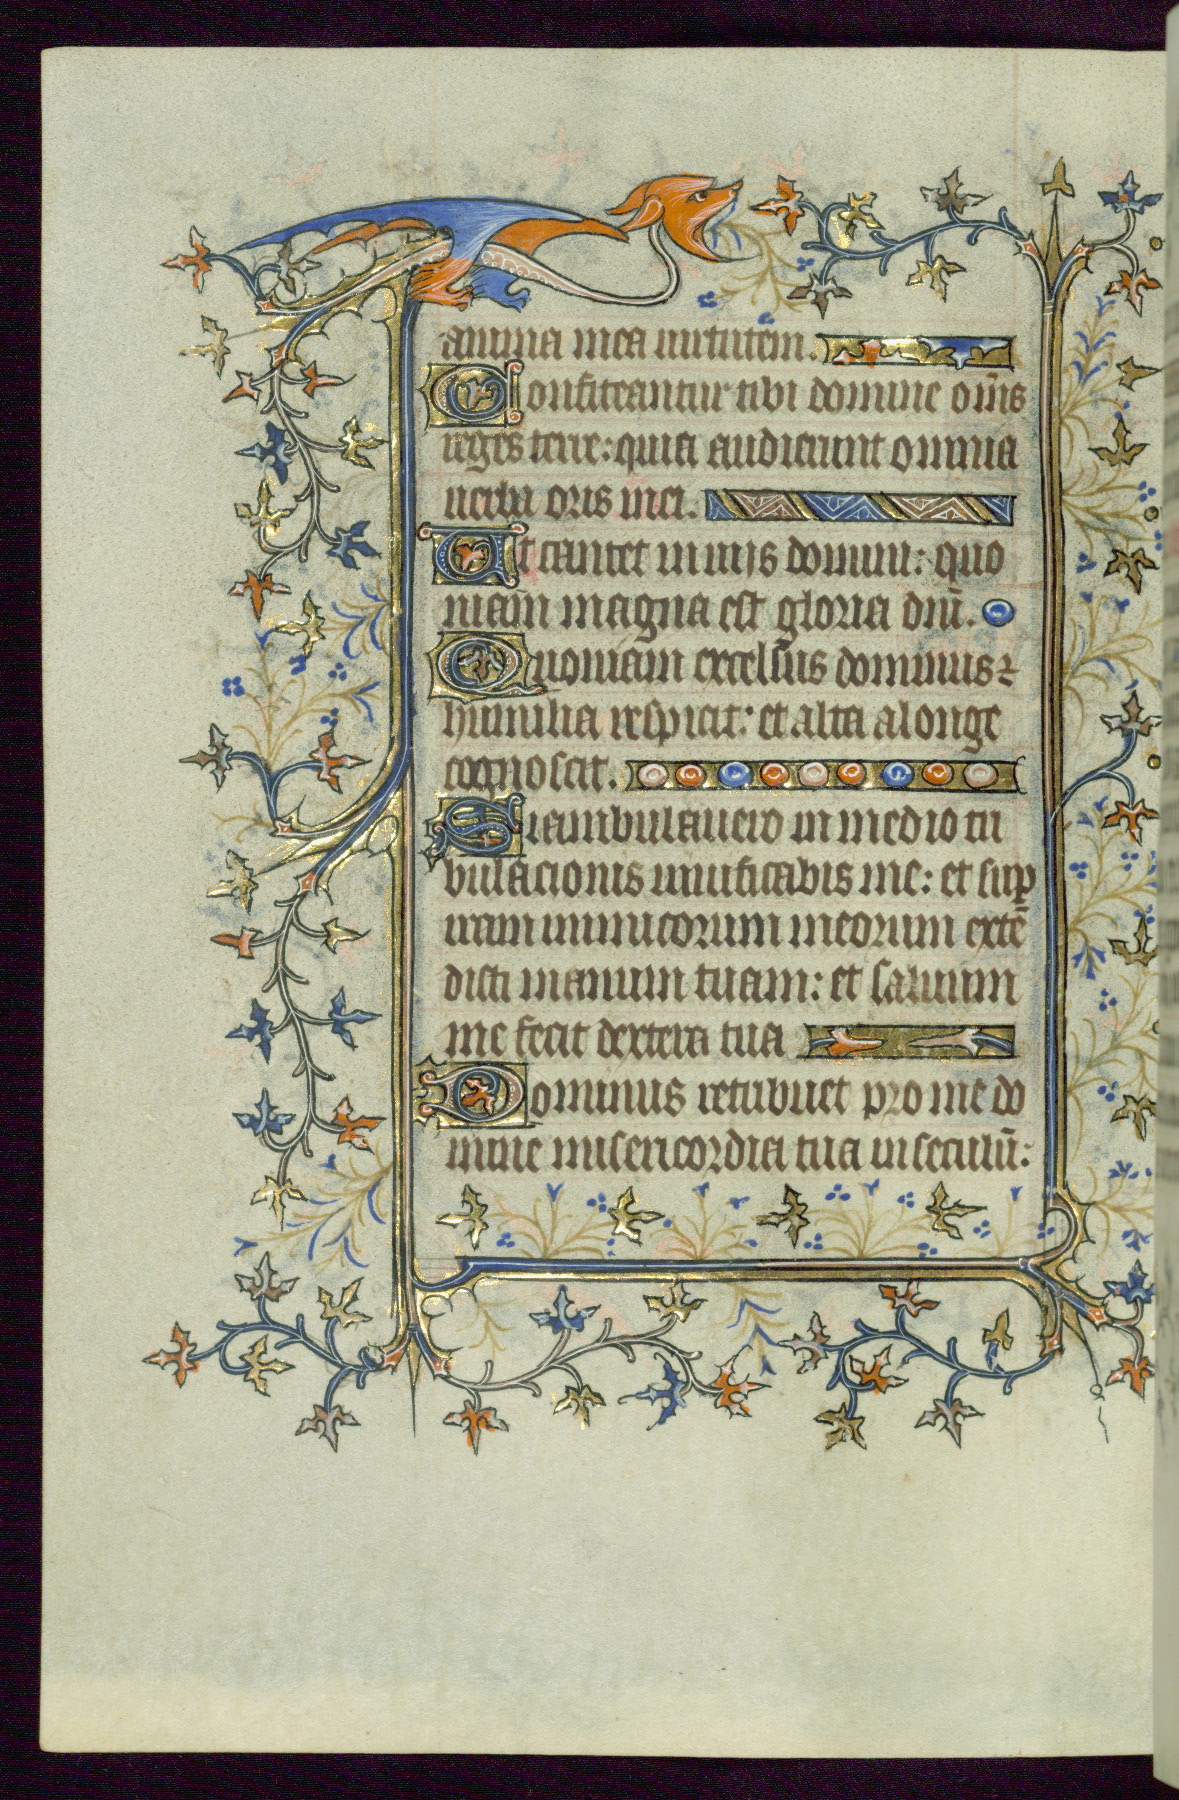 anima mea uirtutem.
Confiteantur tibi domine om̄s
reges terre: quia audierunt omnia
uerba oris mei.
Et cantet in uijs domini: quo
niam magna est gloria dn̄i.
Quoniam excelsus dominus ⁊
humilia respicit: et alta a longe
cognoscit.
Si ambulauero in medio tri
bulacionis uiuificabis me: et sup
iram inimicorum meorum extē
disti manum tuam: et saluum
me fecit dextera tua
Dominus retribuet pro me do
mine misericordia tua in seculū: